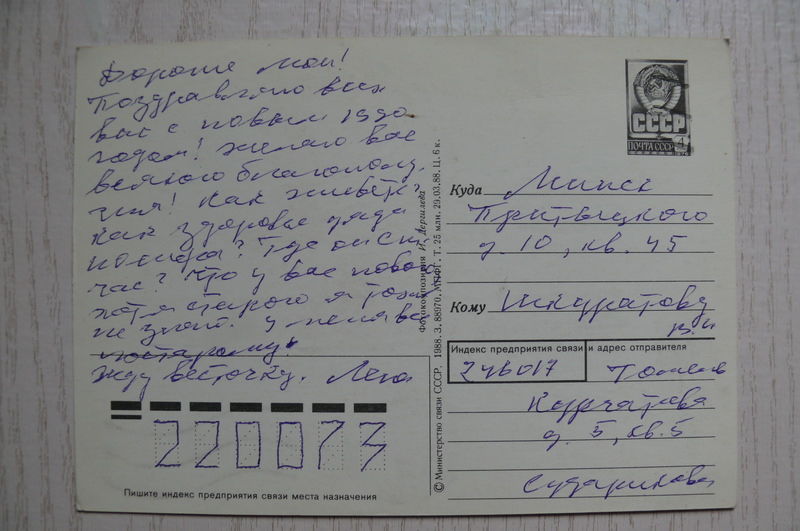 Дорогие мои!
Поздравляю всех
вас с новым 1990
годом! Желаю вас
всякого благополу-
чия! Как живете?
Как здоровье дяди
? Где он сей-
час? Что у вас нового
хотя старого я тоже
не знаю. У меня все
по старому!
Жду весточку. Лена
СССР
ПОЧТА СССР
4
Куда Минск
Притыцкого
д. 10, кв. 45
Кому Шкуратову
В. И
Индекс предприятия связи и адрес отправителя
246017 Гомель
Курчатова
д. 5, кв. 5
Сударикова
220073
Пишите индекс предприятия связи места назначения
Фотокомпозиция И. Дергилева
© Министерство связи СССР. 1988. З. 88970. МПФГ. Т. 25 млн. 29.03.88. Ц. 6 к.